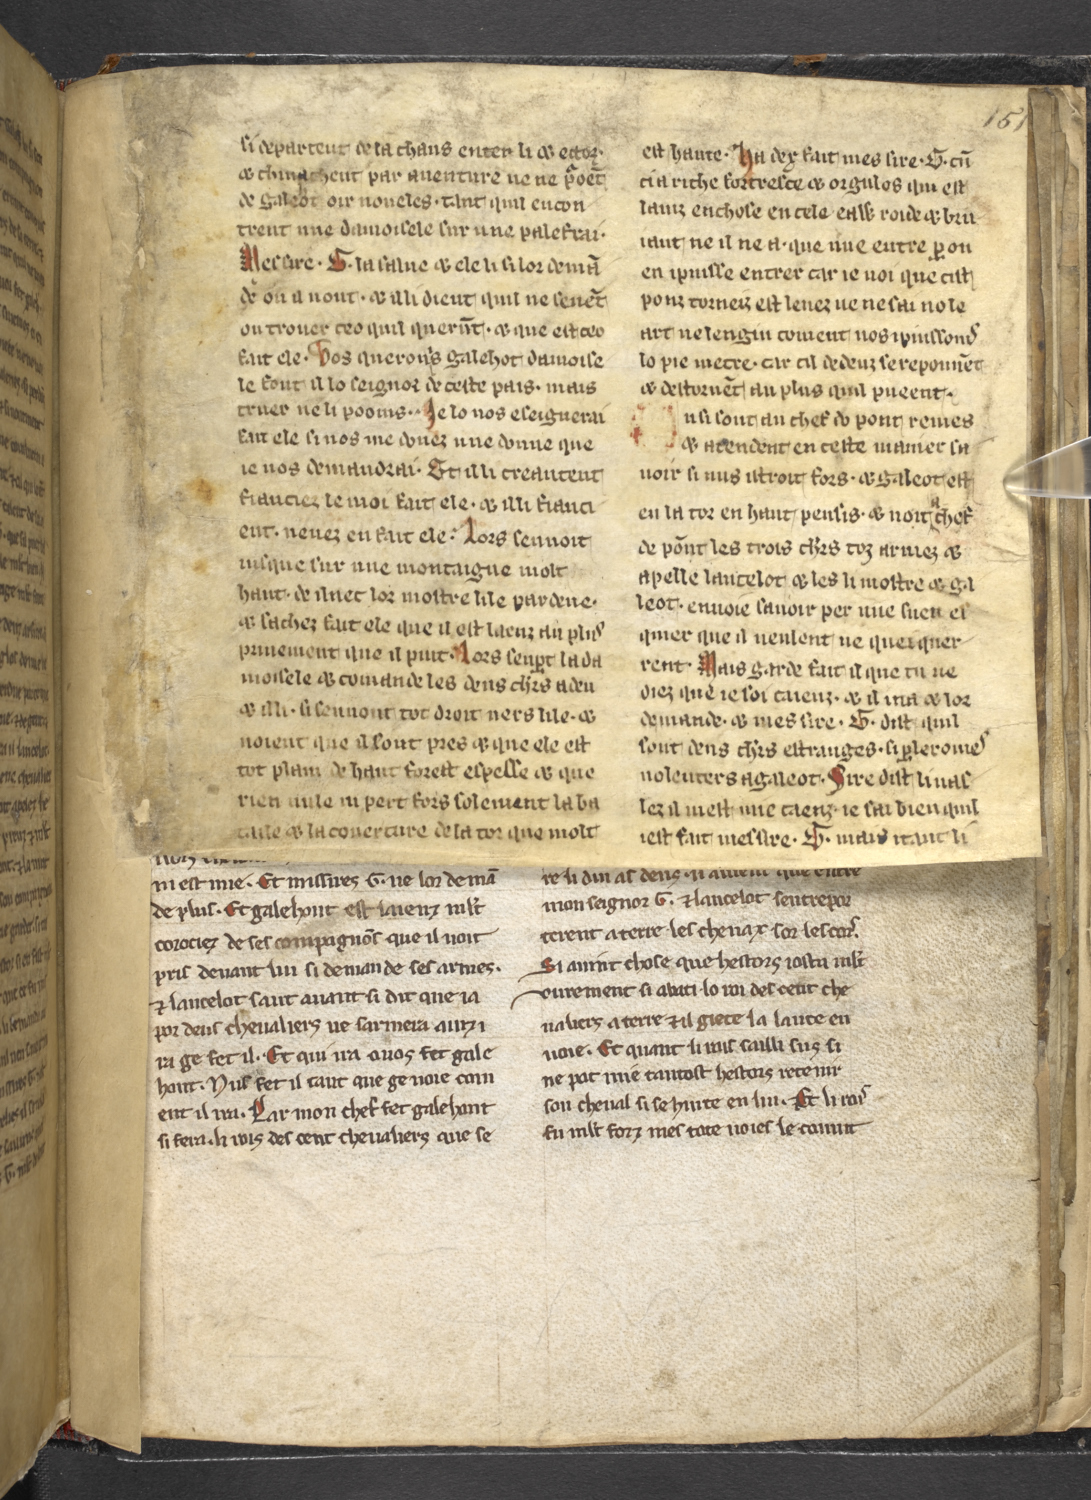 151
si departent de la chans entre li & ector·
& chiuachent par auenture ne ne p̃oet̃
de galeot oir noueles· tant quil encon
trent une damoisele sur une palefrai·
Messire· G· la salue & ele li si lor demã
de ou il uont· & illi dient quil ne seuet̃
ou trouer ceo quil querũt· & que est ceo
fait ele· Nos querons galehot damoise
le font il lo seignor de ceste pais· mais
truer ne li pooms· Je lo uos eseignerai
fait ele si uos me donez une donne que
ie uos demandrai· Et illi creantent
fianciez le moi fait ele· & illi fianci
ent· uenez en fait ele· Lors sen uoit
iusque sur une montaigne molt
haut· & iluec lor mostre lile par dene·
& sachez fait ele que il est laenz au plus
priuement que il puit· Lors senpt la da
moisele & comande les deus chrs a deu
& illi· si sen uont tot droit uers lile· &
uoient que il sont pres & que ele est
tot plain de haut forest espesse & que
rien nule ni pert fors solement la ba
taile & la couerture de la tor que molt
est haute· Ha dex fait mes sire· G· cũ
ci a riche fortresce & orgulos qui est
lainz enclose en cele eaw roide & bru
iant ne il ne a· que une entre p ou
en ipuisse entrer car ie uoi que cist
ponz torneiz est leuez ne ne sai no le
art ne lengin coment nos ipuissons
lo pie metre· car cil dedenz se reponnẽt
& destornẽt au plus quil pueent·
nsi sont au chef do pont remes
& atendent en ceste manier sa
uoir si nus istroit fors· & Galeot est
en la tor en haut pensis· & uoit a chef
de põnt les trois chrs toz armez &
apelle lancelot & les li mostre & ga
leot· enuoie sauoir per une suen es
quier que il uenlent ne quei quer
rent· Mais garde fait il que tu ne
diez que ie soi caienz· & il i ua & lor
demande· & mes sire· G· dist quil
sont deus chrs estranges· si pleromes
uolenters a galeot· Sire dist li uas
lez il niest mie caenz· ie sai bien quil
iest fait messire· G· mais itant li
ni est mie· Et missires G· ne lor demã
de plus· Et galehout est laienz mlt
corociez de ses compagnõs que il uoit
pris deuant lui si demande ses armes·
⁊ lancelot saut auant si dit que ia
por deus cheualiers ne sarmera ainz i
ra ge fet il· Et qui ira o uos fet gale
hout· Nus fet il tant que ge uoie com
ent il ira· Par mon chef fet galehout
si fera· li rois des cent cheualiers que se
mon seignor G· ⁊ lancelot sentrepor
terent a terre les cheuax sor les cors·
Si auint chose que hestors iosta mlt
durement si abati lo roi des cent che
ualiers a terre ⁊ il giete la lance en
uoie· Et quant li rois sailli sus si
ne pot mie tantost hestors retenir
son cheual si se hurte en lui· Et li rois
fu mlt forz mes tote uoies le couint